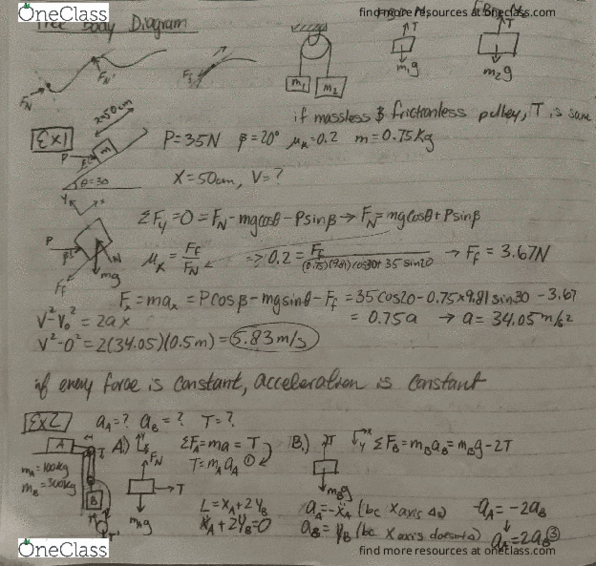 OneClass
find more resources at oneclass.com
Free Body Diagram
F_N
F_N'
F_f
m₁
m₂
T
m₁g
T
m₂g
if massless & frictionless pulley, T is same
Ex1
250cm
P
m
θ=30
P=35N β=20° μ_k=0.2 m=0.75kg
X=50cm, V=?
Y
x
ΣF_y=0=F_N-mgcosθ-Psinβ→F_N=mgcosθ+Psinβ
P
β
N
mg
F_f
μ_k=F_f/F_N → 0.2=F_f/((0.75)(9.81)cos30+35sin20) → F_f=3.67N
F_x=ma_x=Pcosβ-mgsinθ-F_f=35cos20-0.75×9.81sin30-3.67
=0.75a → a=34.05m/s²
V²-V₀²=2ax
V²-0²=2(34.05)(0.5m)=5.83m/s
if every force is constant, acceleration is constant
Ex2 a_A=? a_B=? T=?
A
T
m_A=100kg
m_B=300kg
B
A)
F_N
T
m_Ag
ΣF_A=ma=T
T=m_Aa_A ①
L=x_A+2y_B
ẍ_A+2ÿ_B=0
B.)
2T
m_Bg
x
y
ΣF_B=m_Ba_B=m_Bg-2T
a_A=-ẍ_A (bc x axis
a_B=ÿ_B (bc x axis
-a_A=-2a_B
a_A=2a_B ③
OneClass
find more resources at oneclass.com